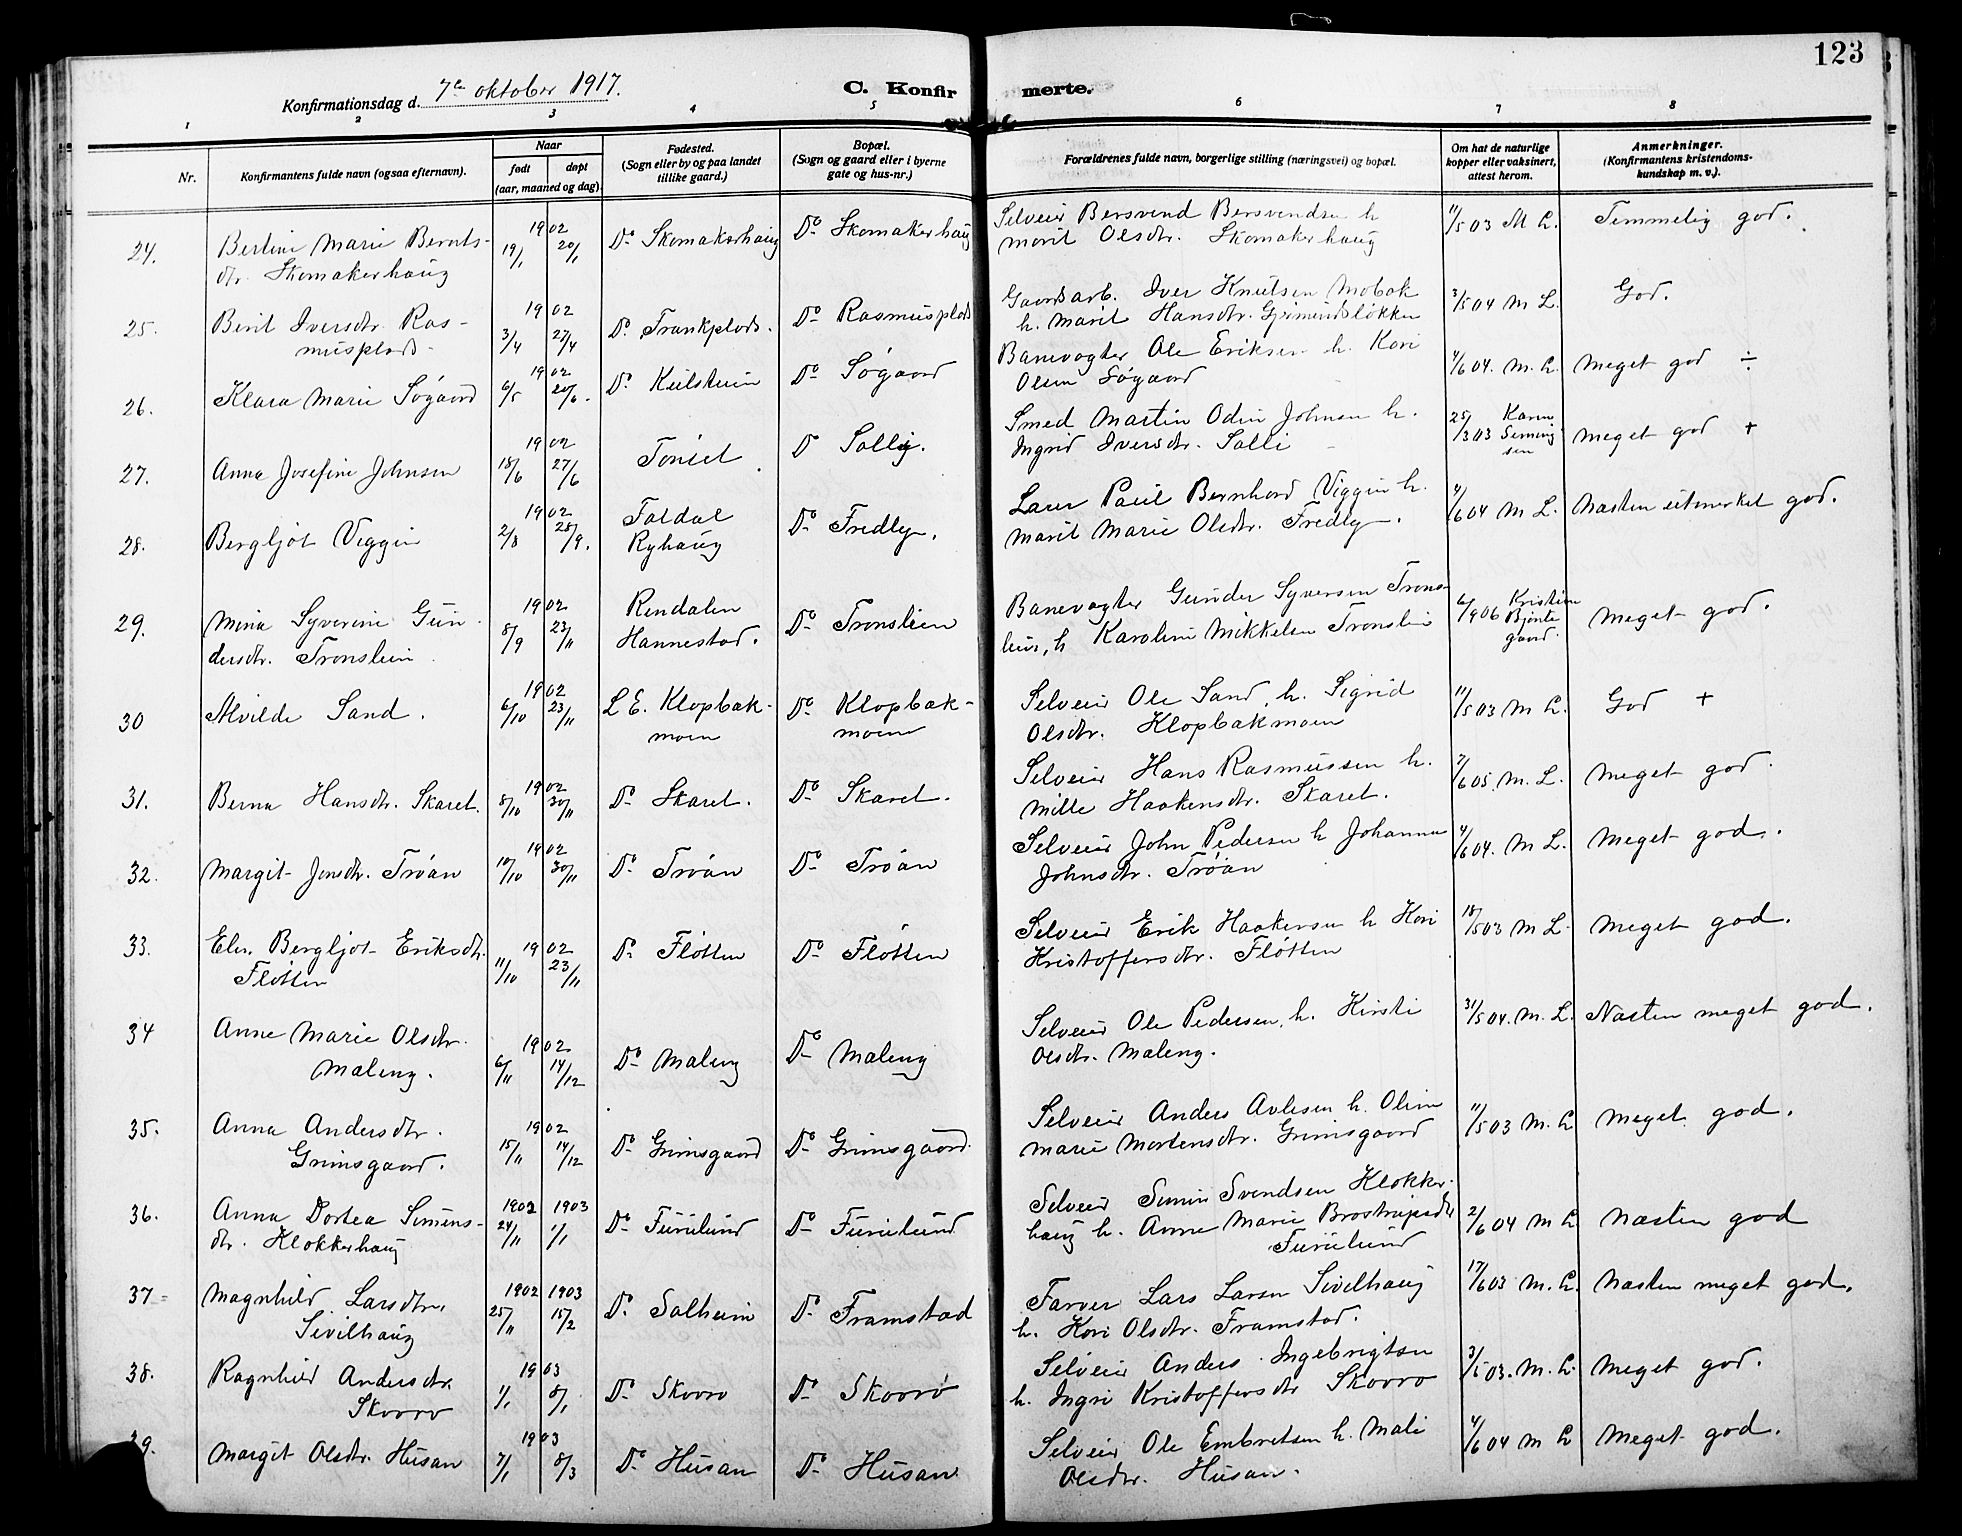 123
Konfirmationsdag d. 7de oktober 1917.
C. Konfirmerte.
1 2 3 4 5 6 7 8
Nr.
Konfirmantens fulde navn (ogsaa efternavn).
Naar
født døpt
(aar, maaned og dag)
Fødested.
(Sogn eller by og paa landet
tillike gaard.)
Bopæl.
(Sogn og gaard eller i byerne
gate og hus-nr.)
Forældrenes fulde navn, borgerlige stilling (næringsvei) og bopæl.
Om hat de naturlige
kopper eller vaksinert,
attest herom.
Anmerkninger.
(Konfirmantens kristendoms-
kundskap m. v.).
24. Bertine Marie Bernts-
dtr. Skomakerhaug
1902 19/1 20/1
Do Skomakerhaug
Do Skomakerhaug
Selveier Bersvend Bersvendsen h
Marit Olsdtr. Skomakerhaug
11/5 03 M L.
Temmelig god.
25. Berit Iversdtr. Ras-
musplads
1902 3/4 27/4
Do Frankplads.
Do Rasmusplads
Gaardsarb. Iver Knutsen Mobak
h. Marit Hansdtr. Gjermundsløkken
3/5 04 M L.
God.
26. Klara Marie Søgaard
1902 6/5 20/6.
Do
Do Søgaard
Banevogter Ole Eriksen h. Kari
Olsen Søgaard
4/6 04. M. L.
Meget god ÷
27. Anna Josefine Johnsen
1902 18/6 27/6
Tønset
Do
Smed Martin Odin Johnsen h.
Ingrid Iversdtr. Salli
25/3 03 Karen
Semming
sen
Meget god +
28. Bergljot Viggin
1902 2/8 28/9.
Foldal
Ryhaug
Do Fredly.
Lærer Paul Bernhard Viggin h.
Marit Marie Olsdtr. Fredly.
4/6 04 M L.
Næsten utmerket god.
29. Mina Syverine Gun
dersdtr. Tronslien
1902 8/9 23/11
Rendalen
Hannestad.
Do Tronslien
Banevogter Gunder Syversen Trons-
lien, h Karoline Mikkelsen Tronslien
6/9 06 Kristian
Bjønte
gaard.
Meget god.
30 Alvilde Sand.
1902 6/10 23/11
L E. Klopbak-
moen
Do Klopbak-
moen
Selveier Ole Sand, h. Sigrid
Olsdtr. Klopbakmoen
11/5 03 M L.
God +
31. Berna Hansdtr. Skaret.
1902 8/10 30/11
Do Skaret.
Do Skaret.
Selveier Hans Rasmussen h.
Mille Haakensdtr. Skaret.
2/6 05. M. L.
Meget god.
32. Margit Jonsdtr. Trøan
1902 10/10 30/11
Do Trøan
Do Trøan
Selveier John Pedersen h Johanna
Johnsdtr. Trøan
4/6 04. M L.
Meget god.
33. Elen Bergljot Eriksdtr.
Fløtten
1902 11/10 23/11
Do Fløtten
Do Fløtten
Selveier Erik Haakensen h Kari
Kristoffersdtr. Fløtten
18/5 03 M L.
Meget god.
34 Anne Marie Olsdtr.
Maleng.
1902 6/11 14/12
Do Maleng
Do Maleng
Selveier Ole Pedersen, h. Kirsti
Olsdtr. Maleng.
31/5 04. M. L.
Næsten meget god.
35. Anna Andersdtr.
Grimsgaard.
1902 15/11 14/12
Do Grimsgaard
Do Grimsgaard.
Selveier Anders Avlesen h. Oline
Marie Mortensdtr. Grimsgaard
11/5 03 M. L
Meget god.
36. Anna Dortea Simens-
dtr. Klokkerhaug
1902 1903 24/11 1/1
Do Furulund
Do Furulund
Selveier Simen Svendsen Klokker-
haug h. Anne Marie Brostrupsdtr
Furulund
2/6 04 M L
Næsten god
37 Magnhild Larsdtr.
Sivilhaug
1902 1903 25/11 15/2
Do Solheim
Do Framstad
Farver Lars Larsen Sivilhaug
h. Kari Olsdtr. Framstad.
17/6 03 M. L.
Næsten meget god.
38. Ragnhild Andersdtr.
Skovro
1903 1/1 8/1
Do Skovro
Do Skovro
Selveier Anders Ingebrigtsen
h. Ingri Kristoffersdtr Skovro
3/5 03. M. L.
Meget god.
39. Margit Olsdtr. Husan
1903 7/1 8/3
Do Husan
Do Husan
Selveier Ole Embretsen h. Mali
Olsdtr. Husan.
4/6 04 M L
Meget god.